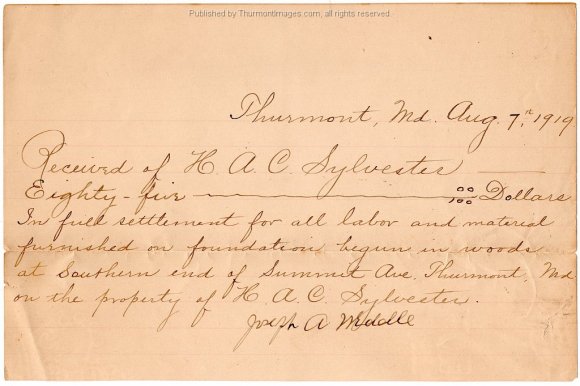 Published by ThurmontImages.com, all rights reserved.
Thurmont, Md. Aug. 7,th 1919
Received of H. A. C. Sylvester
Eighty-five 00/100 Dollars
In full settlement for all labor and material
furnished on foundation begun in woods
at Southern end of Summit Ave. Thurmont, Md
on the property of H. A. C. Sylvester.
Joseph A Weddle